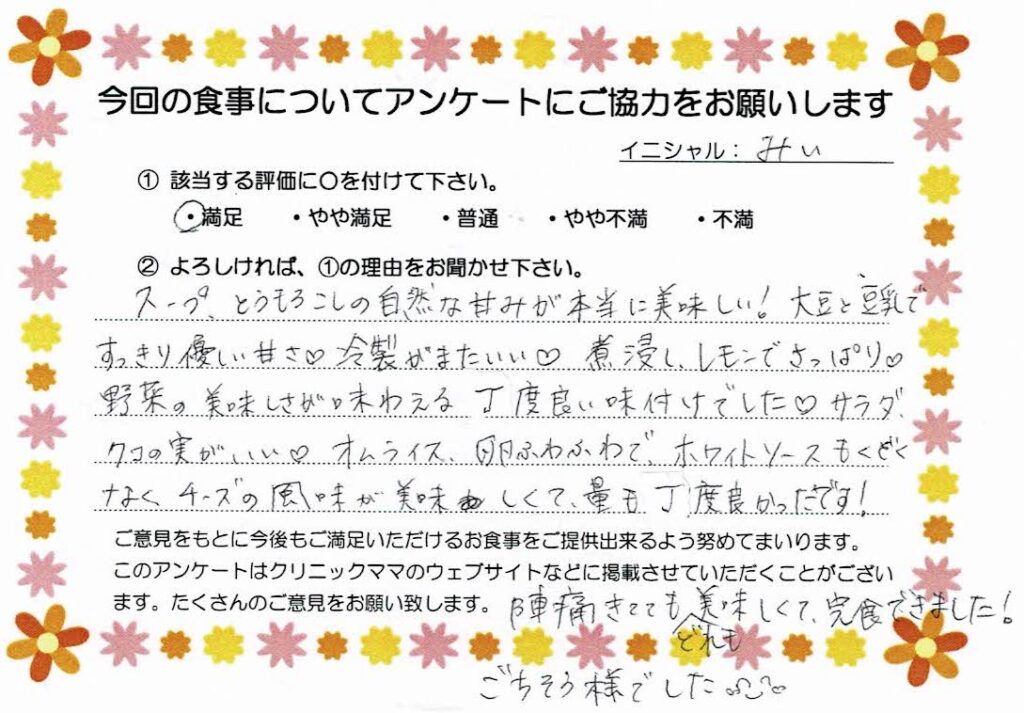 今回の食事についてアンケートにご協力をお願いします
イニシャル: みい
① 該当する評価に○を付けて下さい。
・満足 ・やや満足 ・普通 ・やや不満 ・不満
② よろしければ、①の理由をお聞かせ下さい。
スープ、とうもろこしの自然な甘みが本当に美味しい! 大豆と豆乳で
すっきり優しい甘さ♡ 冷製がまたいい♡ 煮浸し、レモンでさっぱり♡
野菜の美味しさが味わえる 丁度良い味付けでした♡ サラダ、
クコの実がいい♡ オムライス、卵ふわふわで、ホワイトソースもくどく
なく、チーズの風味が美味しくて、量も丁度良かったです!
ご意見をもとに今後もご満足いただけるお食事をご提供出来るよう努めてまいります。
このアンケートはクリニックママのウェブサイトなどに掲載させていただくことがござい
ます。たくさんのご意見をお願い致します。
陣痛きてても美味しくて、完食できました!
どれも
ごちそう様でした